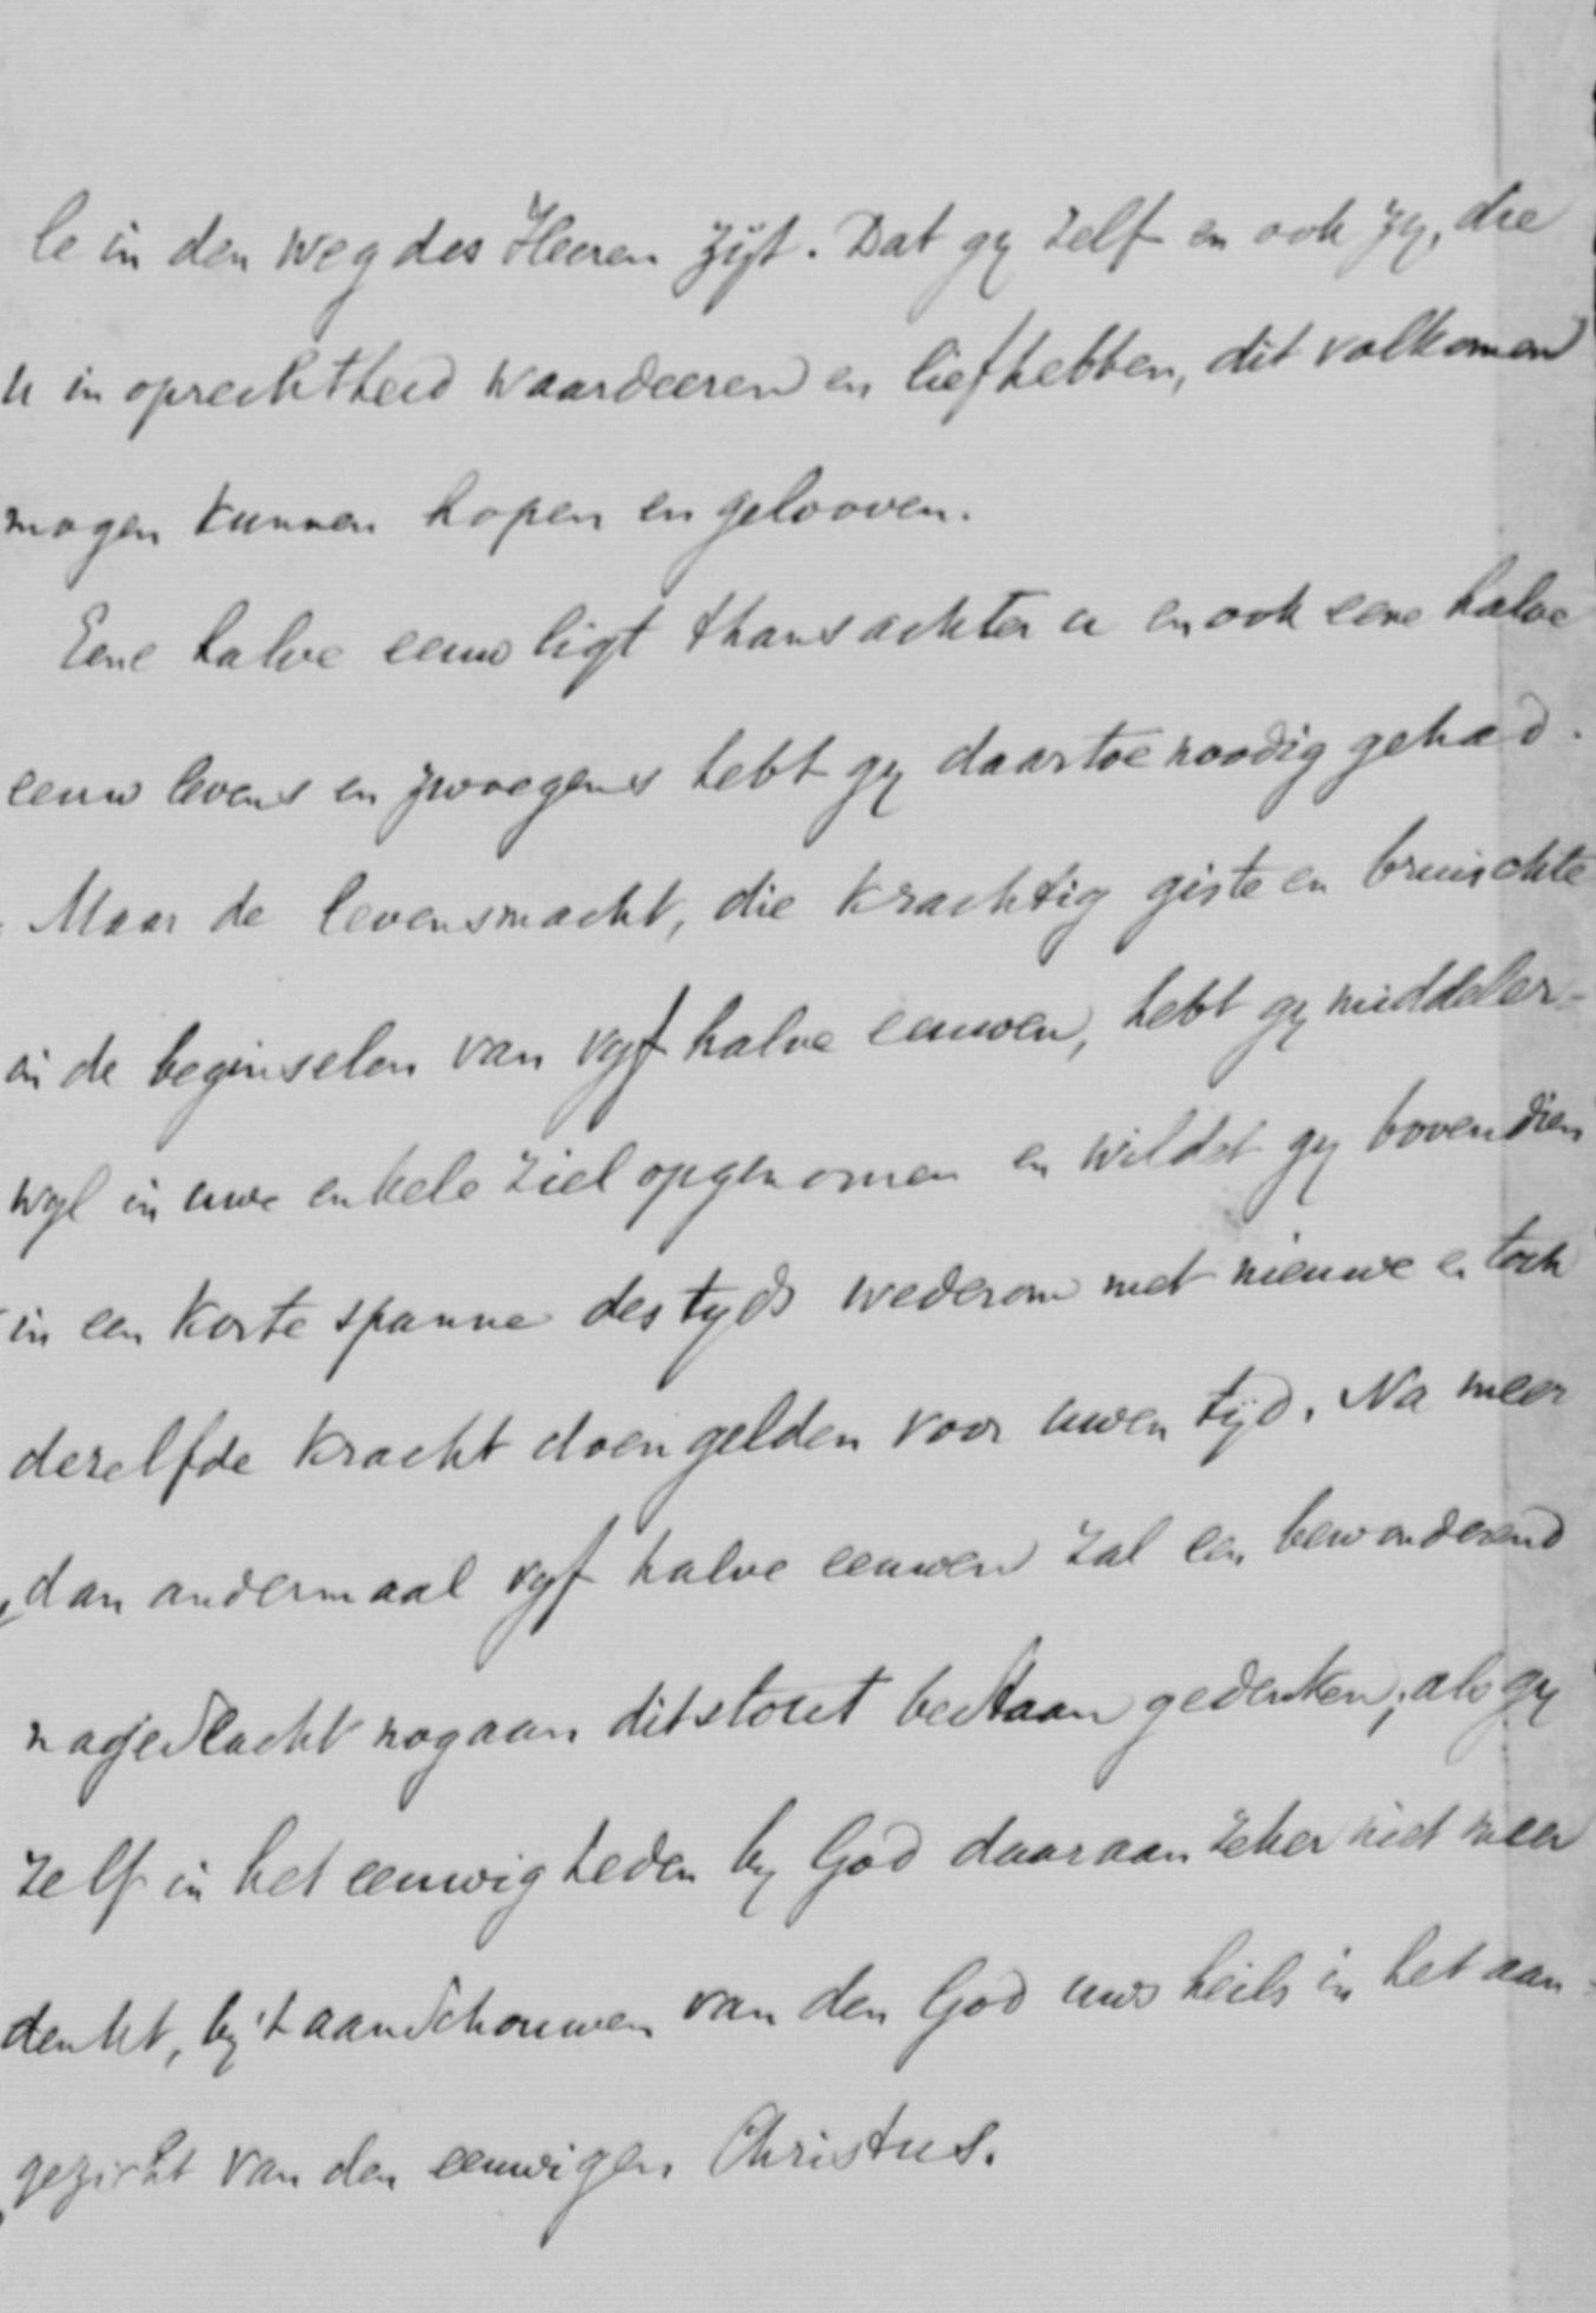 le in den weg des Heeren zijt. Dat gy zelf en ook zy, die
u in oprechtheid waardeeren en liefhebben, dit volkomen
mogen kunnen hopen en gelooven.
Eene halve eeuw ligt thans achter u en ook eene halve
eeuw levens en zwoegens hebt gy daartoe noodig gehad.
Maar de levensmacht, die krachtig giste en bruischte
in de beginselen van vyf halve eeuwen, hebt gy middeler-
wyl in uwe enkele ziel opgenomen en wildet gy bovendien
in een korte spanne des tyds wederom met nieuwe en toch
derzelfde kracht doen gelden voor uwen tijd. Na meer
dan andermaal vyf halve eeuwen zal een bewonderend
nageslacht nog aan dit stout bestaan gedenken, als gy
zelf in het eeuwig heden by God daaraan zeker niet meer
denkt, by 't aanschouwen van den God uws heils in het aan-
gezicht van den eeuwigen Christus.